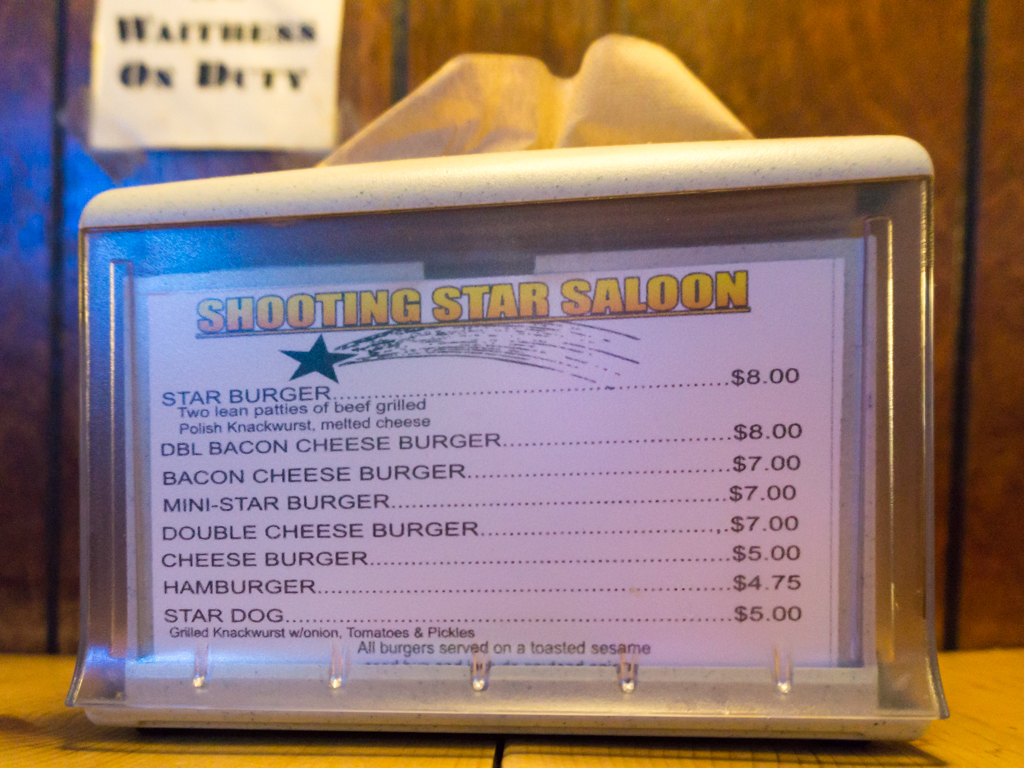 WAITRESS
ON DUTY
SHOOTING STAR SALOON
STAR BURGER..........$8.00
Two lean patties of beef grilled
Polish Knackwurst, melted cheese
DBL BACON CHEESE BURGER..........$8.00
BACON CHEESE BURGER..........$7.00
MINI-STAR BURGER..........$7.00
DOUBLE CHEESE BURGER..........$7.00
CHEESE BURGER..........$5.00
HAMBURGER..........$4.75
STAR DOG..........$5.00
Grilled Knackwurst w/onion, Tomatoes & Pickles
All burgers served on a toasted sesame